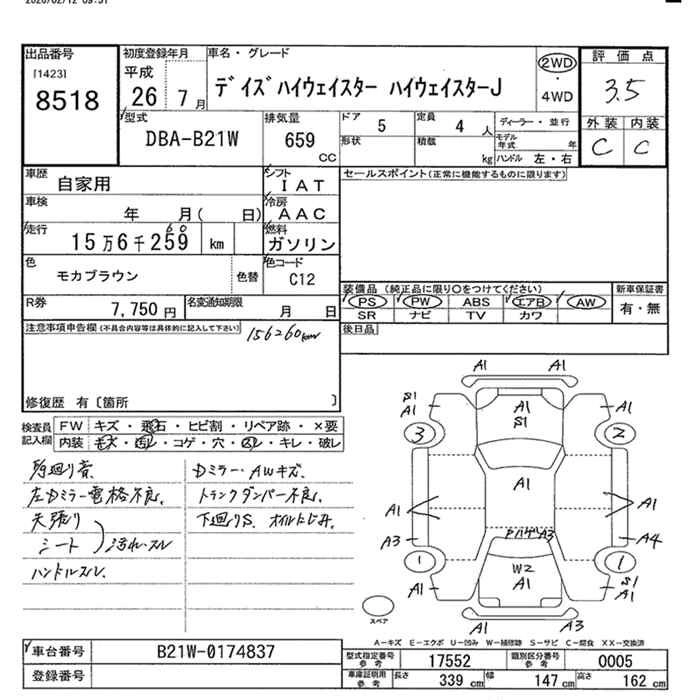 出品番号
[1423]
8518
初度登録年月
平成
26 7月
車名・グレード
デイズハイウェイスター ハイウェイスターJ
2WD
・
4WD
評価点
3.5
外装 内装
C C
型式
DBA-B21W
排気量
659
CC
ドア 5
定員 4 人
ディーラー・並行
形状
積載 kg
モデル年式 年
ハンドル 左・右
車歴
自家用
シフト
IAT
セールスポイント(正常に機能するものに限ります)
車検
年 月( 日)
冷房
AAC
走行
15万6千259 km
60
燃料
ガソリン
色
モカブラウン
色替
色コード
C12
装備品 (純正品に限り○をつけてください)
PS PW ABS エアB AW
SR ナビ TV カワ
新車保証書
有・無
R券
7,750円
名変通知期限
月 日
後日品
注意事項申告欄(不具合内容等は具体的に記入して下さい)
156260km
修復歴 有〔箇所 〕
検査員記入欄
FW キズ・飛石・ヒビ割・リペア跡・×要
内装 キズ・汚レ・コゲ・穴・スレ・キレ・破レ
左Dミラー電格不良.
天張り
シート
汚れ・スレ
ハンドルスレ.
Dミラー・AWキズ.
トランクダンパー不良.
下廻りS. オイルにじみ.
A1 A1
S1
A1
A1
S1
A1
3 2
A1
A1 A1
A3 A4
1 1
W2
A1
A1
S1
A1
A1 A3
スペア
A-キズ E-エクボ U-凹み W-補修跡 S-サビ C-腐食 XX-交換済
車台番号
B21W-0174837
登録番号
型式指定番号
参考
17552
類別区分番号
参考
0005
車庫証明用
参考
長さ 339 cm
幅 147 cm
高さ 162 cm